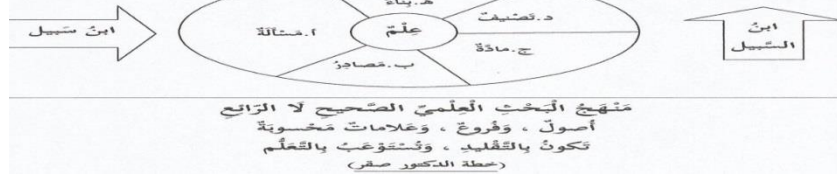 هـ.بِنَاءٌ
د.تَصْنِيفٌ
ابنُ سَبِيل
أ.مَسْأَلَةٌ
عِلْمٌ
ج.مَادَّةٌ
ب.مَصَادِرُ
ابنُ
السَّبِيل
مَنْهَجُ الْبَحْثِ الْعِلْمِيِّ الصَّحِيحِ لَا الرَّائِعِ
أُصولٌ ، وَفُروعٌ ، وَعَلاماتٌ مَحْسوبَةٌ
تَكونُ بِالتَّقْليدِ ، وَتُسْتَوْعَبُ بِالتَّعَلُّم
(خطة الدكتور صقر)